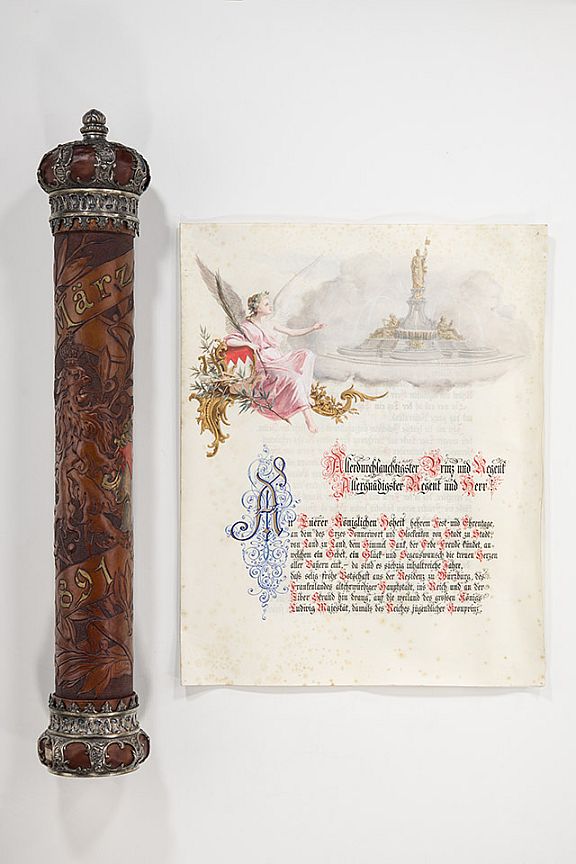 März
891
Allerdurchlauchtigster Prinz und Regent
Allergnädigster Regent und Herr!
An Euerer Königlichen Hoheit hehrem Fest- und Ehrentage,
an dem des Erzes Donnerwort und Glockenton von Stadt zu Stadt,
von Land zu Land, dem Himmel Dank, der Erde Freude kündet, an
welchem ein Gebet, ein Glück- und Segenswunsch die treuen Herzen
aller Bayern eint, – da sind es siebzig inhaltreiche Jahre,
daß selig frohe Botschaft aus der Residenz zu Würzburg, des
Frankenlandes altehrwürdiger Hauptstadt, ins Reich und an der
Tiber Strand hin drang, auf die weiland des großen Königs
Ludwig Majestät, damals des Reiches jugendlicher Kronprinz,